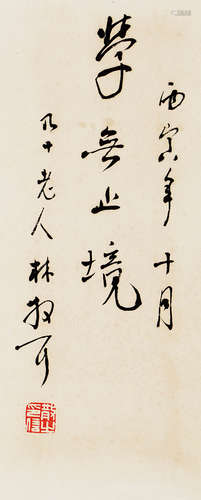 丙寅年十月
學無止境
九十老人林散耳